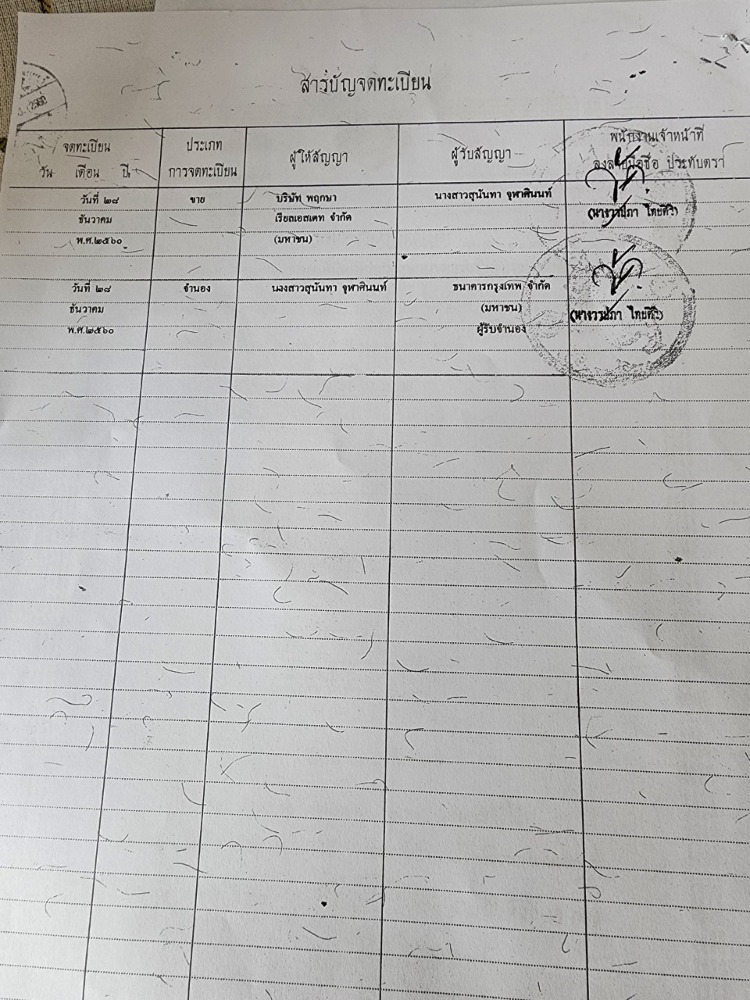 สารบัญจดทะเบียน
จดทะเบียน
วัน เดือน ปี
ประเภท
การจดทะเบียน
ผู้ให้สัญญา
ผู้รับสัญญา
พนักงานเจ้าหน้าที่
ลงลายมือชื่อ ประทับตรา
วันที่ ๒๘
ธันวาคม
พ.ศ.๒๕๖๐
ขาย
บริษัท พฤกษา
เรียลเอสเตท จำกัด
(มหาชน)
นางสาวสุนันทา จุฬาศินนท์
วันที่ ๒๘
ธันวาคม
พ.ศ.๒๕๖๐
จำนอง
นางสาวสุนันทา จุฬาศินนท์
ธนาคารกรุงเทพ จำกัด
(มหาชน)
ผู้รับจำนอง